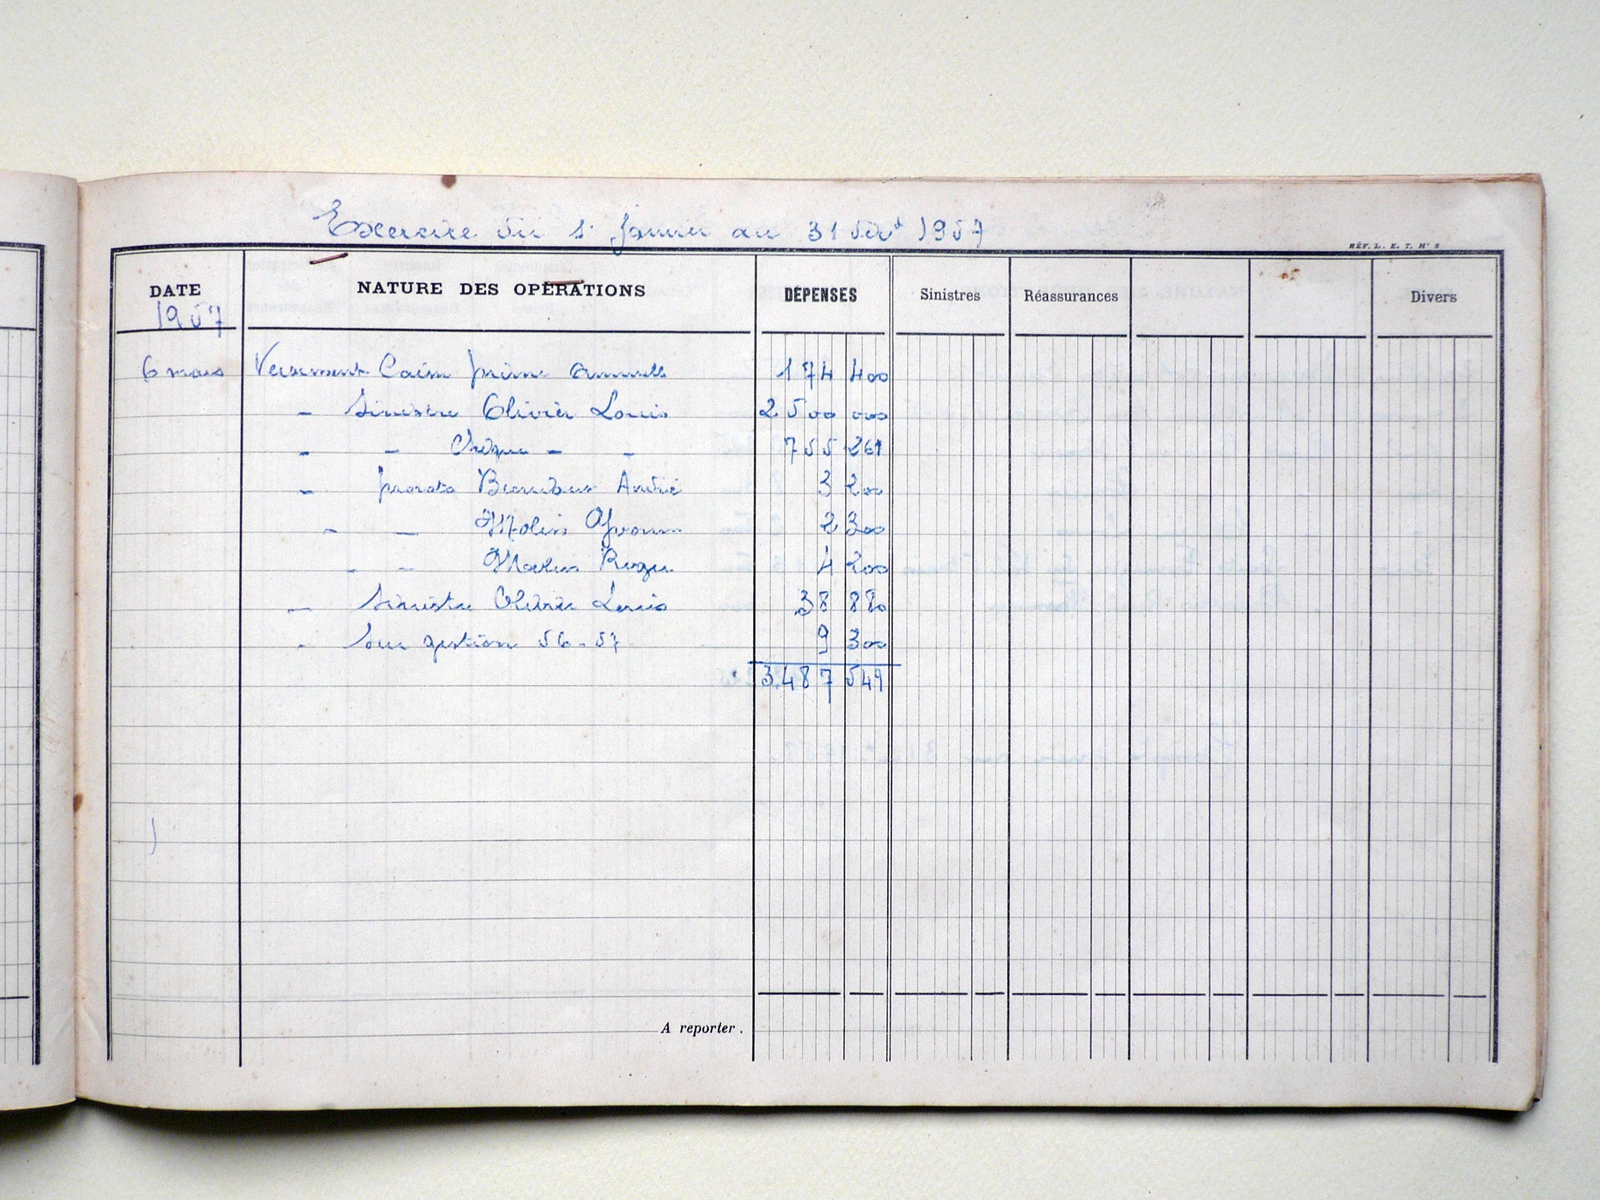 Exercice du 1er Janvier au 31 Déc 1957
RÉF. L. E. T. N° 8
DATE NATURE DES OPÉRATIONS DÉPENSES Sinistres Réassurances Divers
1957
6 mars Versement Caisse prime annuelle 174 400
- Sinistre Olivier Louis 2 500 000
- - Chèque - - 755 261
- prorata André 3 200
- - Molin Yvonne 2 300
- - Molin Roger 4 200
- Sinistre Olivier Louis 38 880
- Sur gestion 56-57 9 300
3.487 541
A reporter.